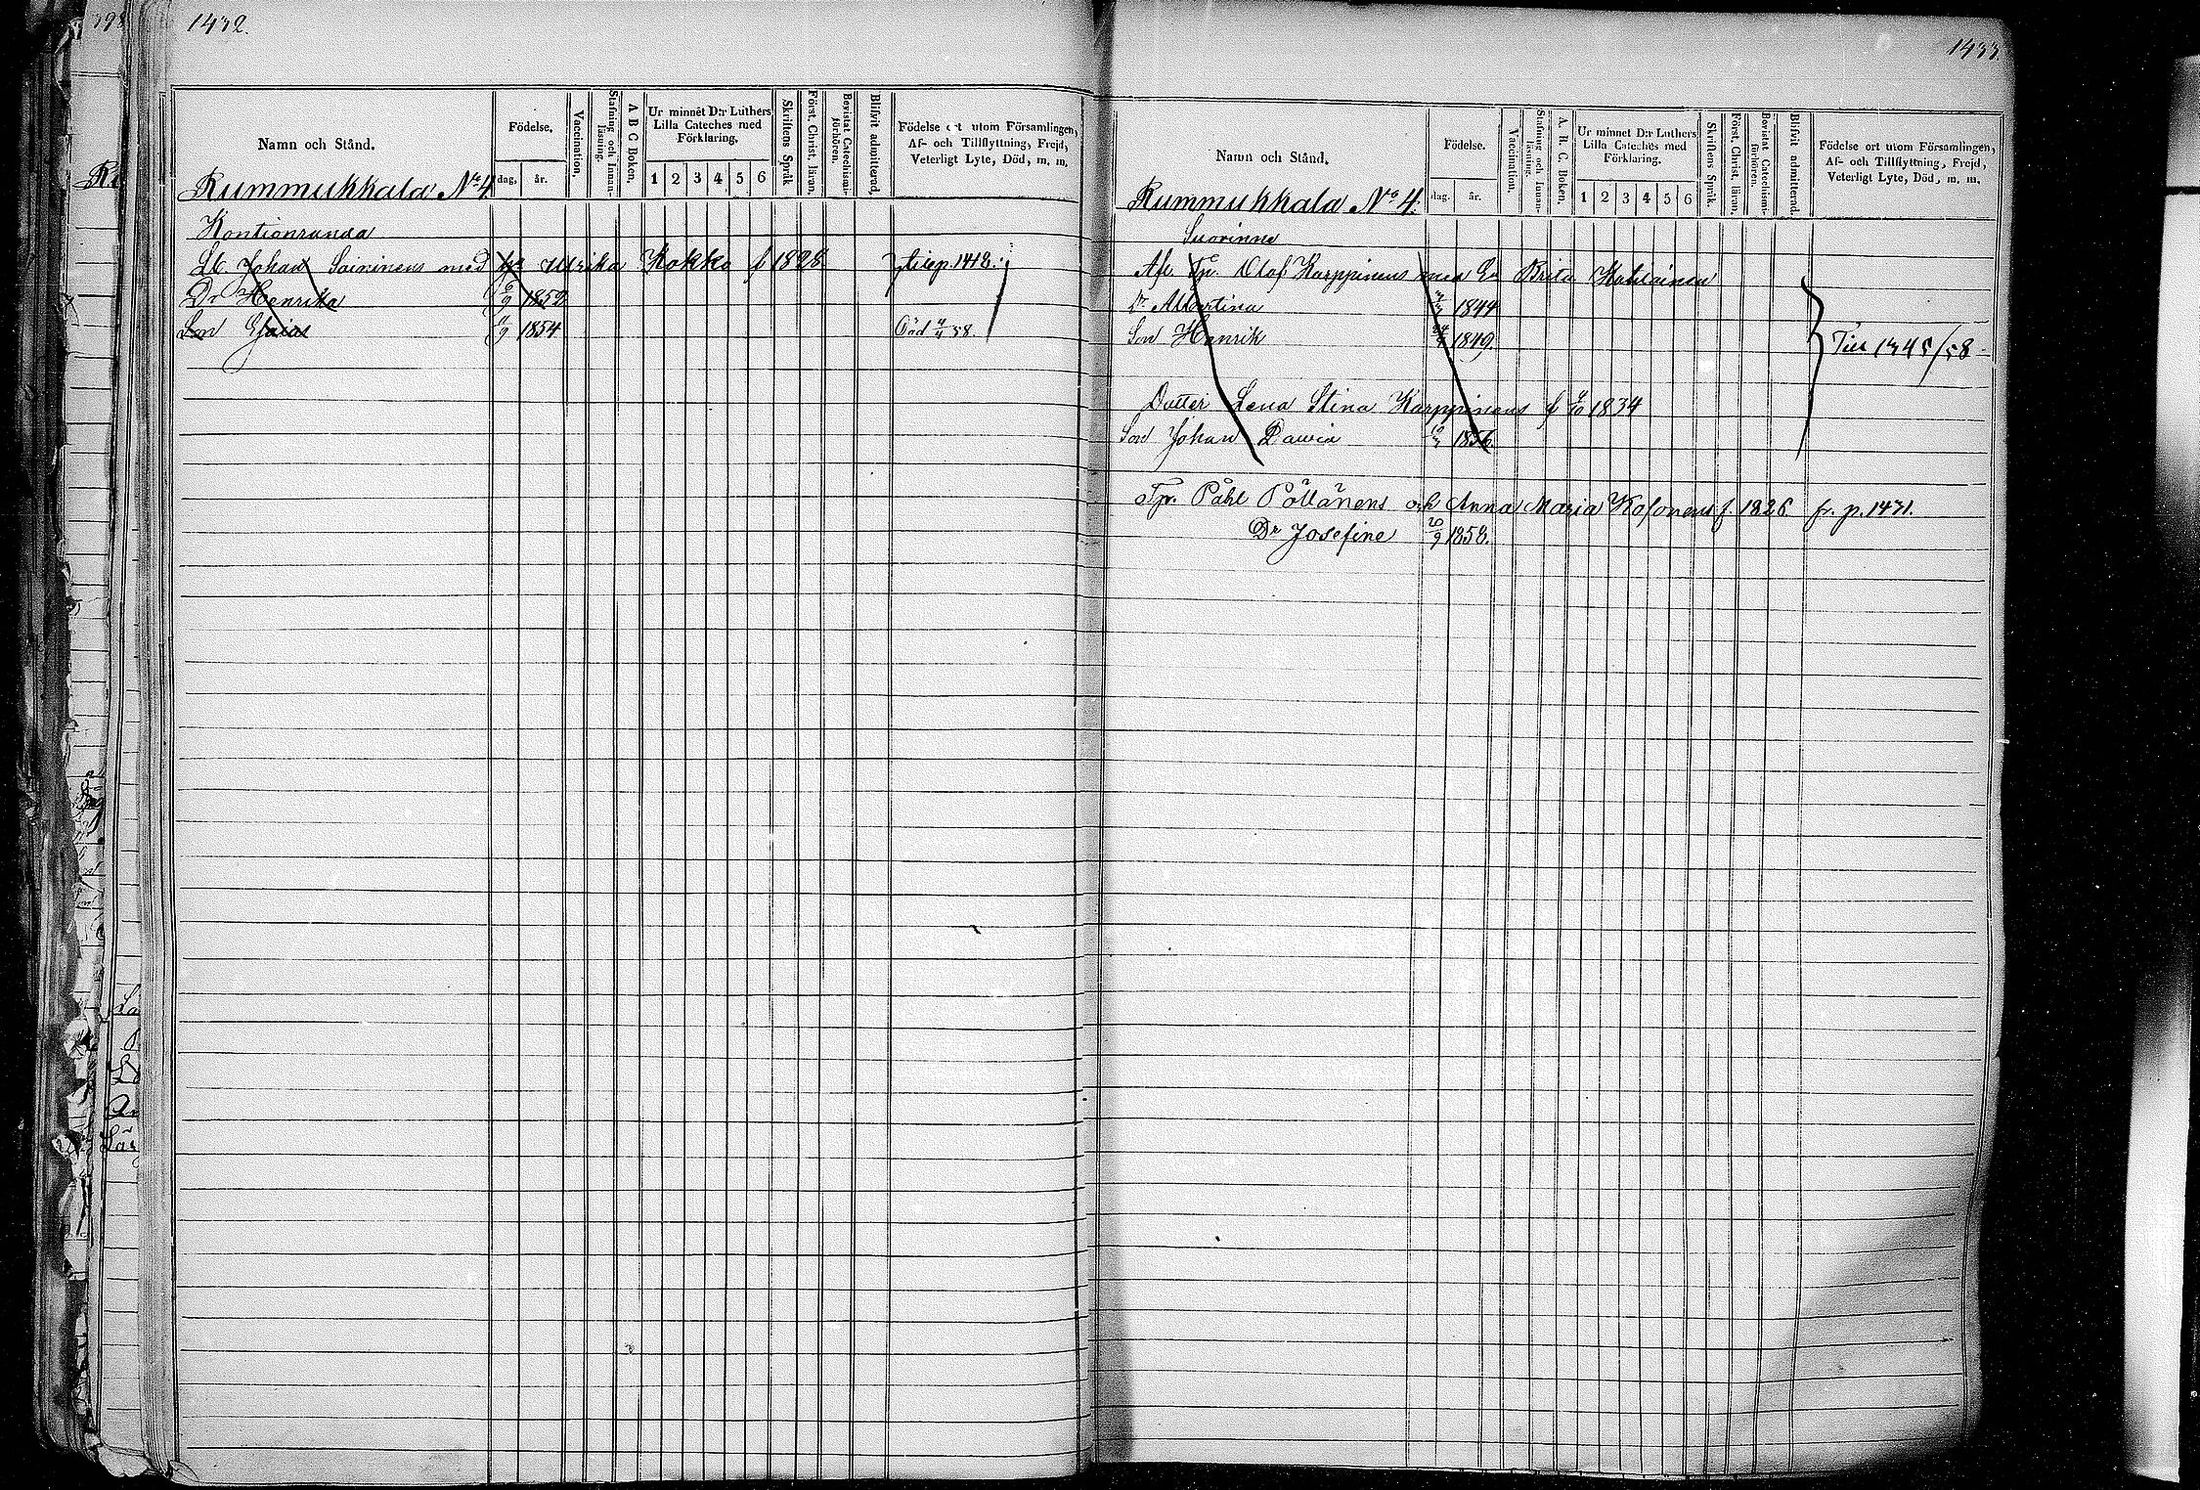 1432.
Namn och Stånd.
Födelse.
dag, år.
Vaccination.
Stafning och Innan-läsning.
A B C Boken.
Ur minnet D:r Luthers Lilla Cateches med Förklaring.
1 2 3 4 5 6
Skriftens Språk
Först. Christ. läran.
Bevistat Catechismi-förhören.
Blifvit admitterad.
Födelse ort utom Församlingen, Af- och Tillflyttning, Frejd, Veterligt Lyte, Död, m. m.
Rummukkala No 4
Kontionranda
Johan Soininens med Ulrika Kokko f 1828 till p. 1418.
Dr Henrika 6/9 1852
Son 1854 Död 4/4 58.
1433.
Namn och Stånd.
Födelse.
dag. år.
Vaccination.
Stafning och Innan-läsning.
A. B. C. Boken.
Ur minnet D:r Luthers Lilla Cateches med Förklaring.
1 2 3 4 5 6
Skriftens Språk.
Först. Christ. läran.
Bevistat Catechismi-förhören.
Blifvit admitterad.
Födelse ort utom Församlingen, Af- och Tillflyttning, Frejd, Veterligt Lyte, Död, m. m.
Rummukkala No 4.
Suorinne
Tp. Olof Karppinens med Brita
Dr Albertina 1844
Son Henrik 1849.
Till 1345/58
Dotter Lena Stina Karppinens f 1834
Son Johan David 1856.
Tp. Påhl Pöllänens och Anna Maria Kosonens f. 1826 fr. p. 1431.
Dr Josefine 20/9 1858.